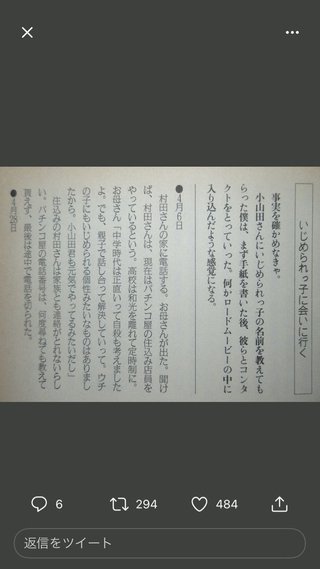 いじめられっ子に会いに行く
事実を確かめなきゃ。
小山田さんにいじめられっ子の名前を教えても
らった僕は、まず手紙を書いた後、彼らとコンタ
クトをとっていった。何かロードムービーの中に
入り込んだような感覚になる。
●4月6日
村田さんの家に電話する。お母さんが出た。聞け
ば、村田さんは、現在はパチンコ屋の住込み店員を
やっているという。高校は和光を離れて定時制に。
お母さん「中学時代は正直いって自殺も考えました
よ。でも、親子で話し合って解決していって。ウチ
の子にもいじめられる個性みたいなものはありまし
たから。小山田君も元気でやってるみたいだし」
住込みの村田さんは家族とも連絡がとれないらし
い。パチンコ屋の電話番号は、何度尋ねても教えて
貰えず、最後は途中で電話を切られた。
●4月28日
6
294
484
返信をツイート